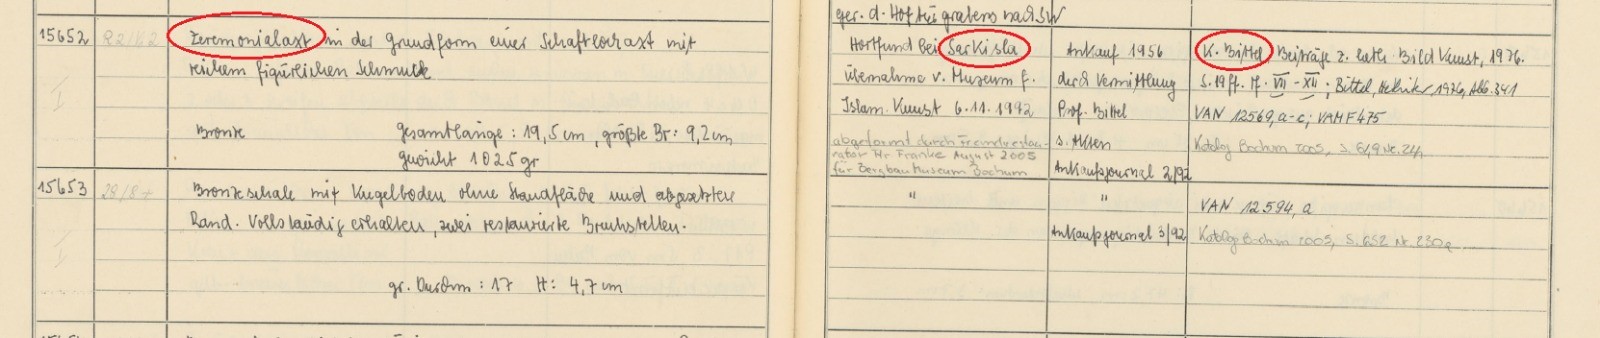 ger. d. Hofes grabens nach SW
15652
Zeremonialaxt in der Grundform einer Schaftlochaxt mit
reichem figürlichen Schmuck
Bronze
Gesamtlänge: 19,5 cm, größte Br: 9,2 cm
Gewicht 1025 gr
Hortfund bei Sarkisla
Übernahme v. Museum f.
Islam. Kunst 6.11.1992
abgeformt durch Fremdrestau-
rator Hr Franke August 2005
für Bergbau Museum Bochum
Ankauf 1956
durch Vermittlung
Prof. Bittel
s. Akten
Ankaufsjournal 2/92
K. Bittel Beiträge z. heth. Bild Kunst, 1976.
S. 19 ff. Tf. VII - XII; Bittel, Hethiter, 1976, Abb. 341
VAN 12569, a-c; VAMF475
Katalog Bochum 2005, S.
15653
28/8+
Bronzeschale mit Kugelboden ohne Standfläche und abgesetzten
Rand. Vollständig erhalten, zwei restaurierte Bruchstellen.
gr. Durchm: 17 H: 4,7 cm
"
"
Ankaufsjournal 3/92
VAN 12594, a
Katalog Bochum 2005, S. 652 Nr. 230